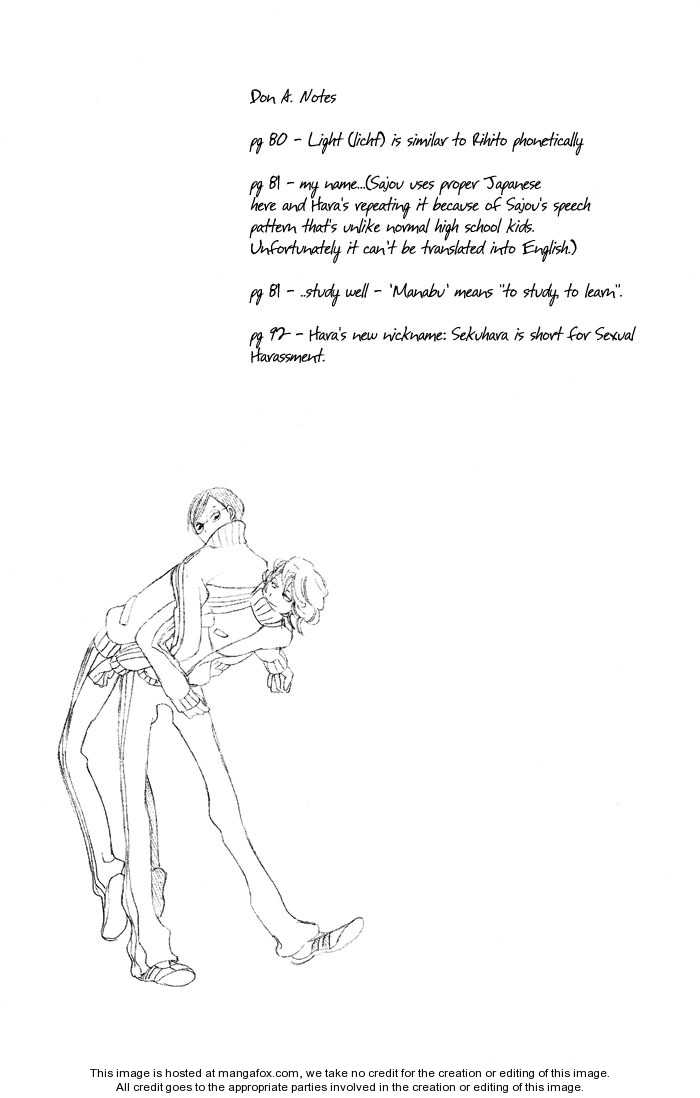 Don A. Notes
pg 80 - Light (licht) is similar to Rihito phonetically
pg 81 - my name...(Sajou uses proper Japanese
here and Hara's repeating it because of Sajou's speech
pattern that's unlike normal high school kids.
Unfortunately it can't be translated into English.)
pg 81 - ..study well - 'Manabu' means "to study, to learn".
pg 92 - Hara's new nickname: Sekuhara is short for Sexual
Harassment.
This image is hosted at mangafox.com, we take no credit for the creation or editing of this image.
All credit goes to the appropriate parties involved in the creation or editing of this image.